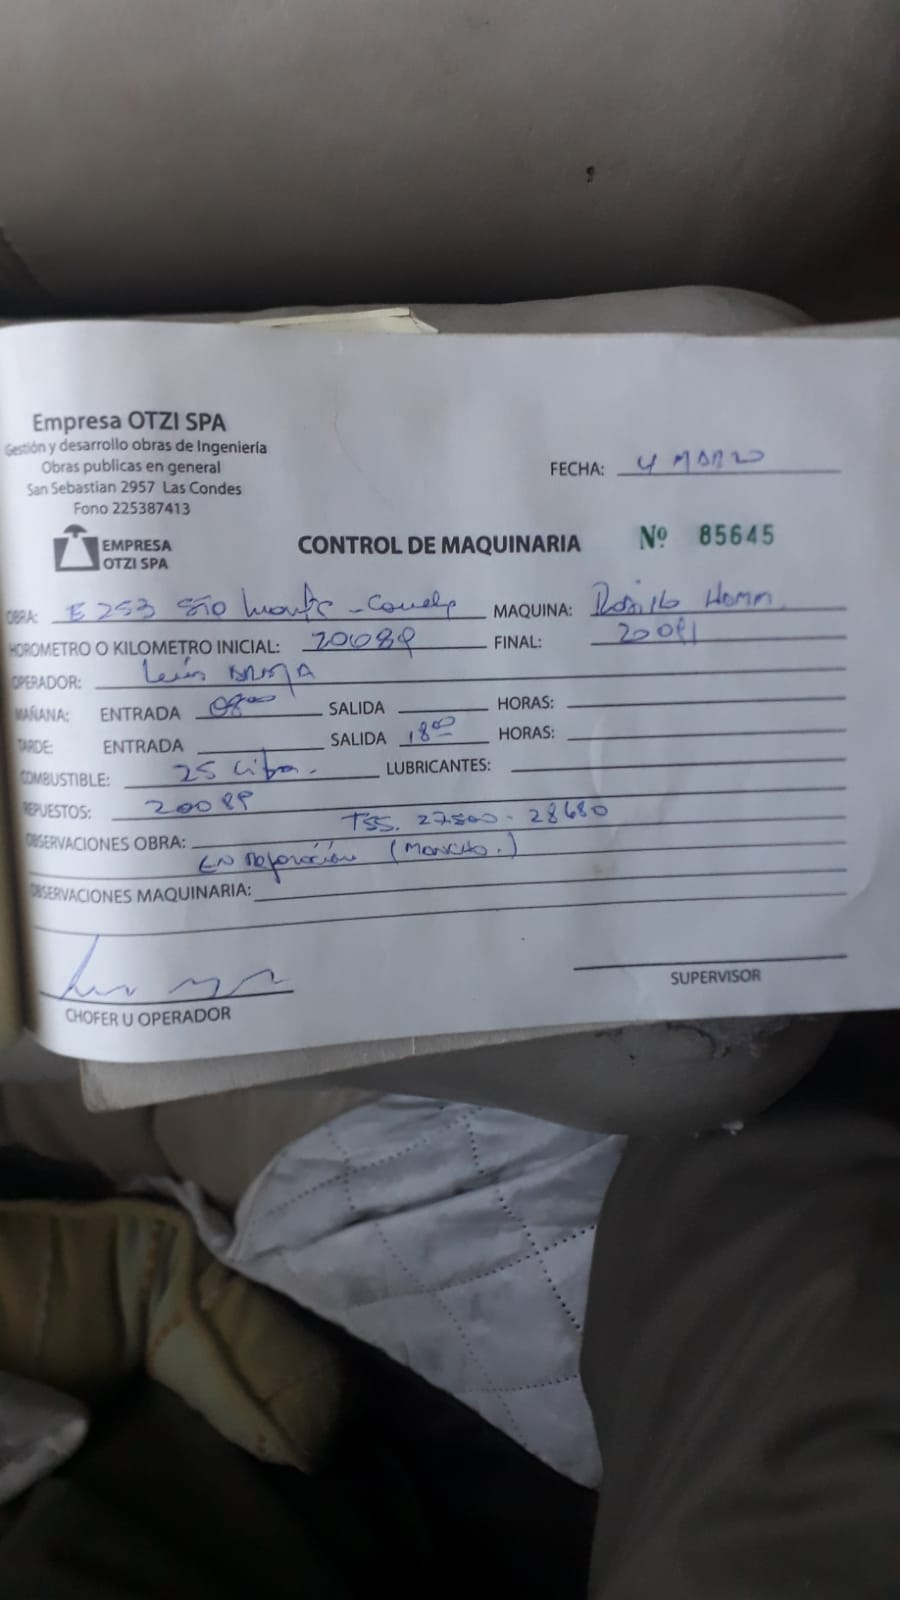 Empresa OTZI SPA
Gestión y desarrollo obras de Ingeniería
Obras publicas en general
San Sebastian 2957 Las Condes
Fono 225387413
EMPRESA
OTZI SPA
FECHA: 4 MARZO
CONTROL DE MAQUINARIA Nº 85645
OBRA: E 253 MAQUINA: Rodillo Hamm
HOROMETRO O KILOMETRO INICIAL: 20089 FINAL: 20091
OPERADOR: Luis
MAÑANA: ENTRADA 08:00 SALIDA HORAS:
TARDE: ENTRADA SALIDA 18:00 HORAS:
COMBUSTIBLE: 25 Litros. LUBRICANTES:
REPUESTOS: 20089
OBSERVACIONES OBRA: TSS. 27500 - 28680
EN
OBSERVACIONES MAQUINARIA:
CHOFER U OPERADOR
SUPERVISOR